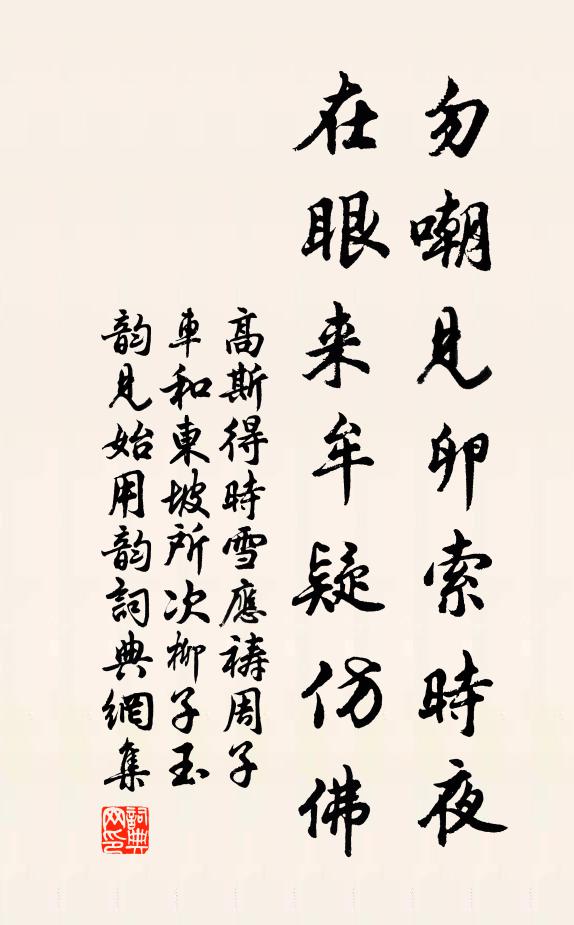 勿嘲見卵索時夜
在眼来牟疑仿佛
高斯得時雪應禱周子
車和東坡所次柳子玉
韵見始用韵詞典網集
詞典
网印